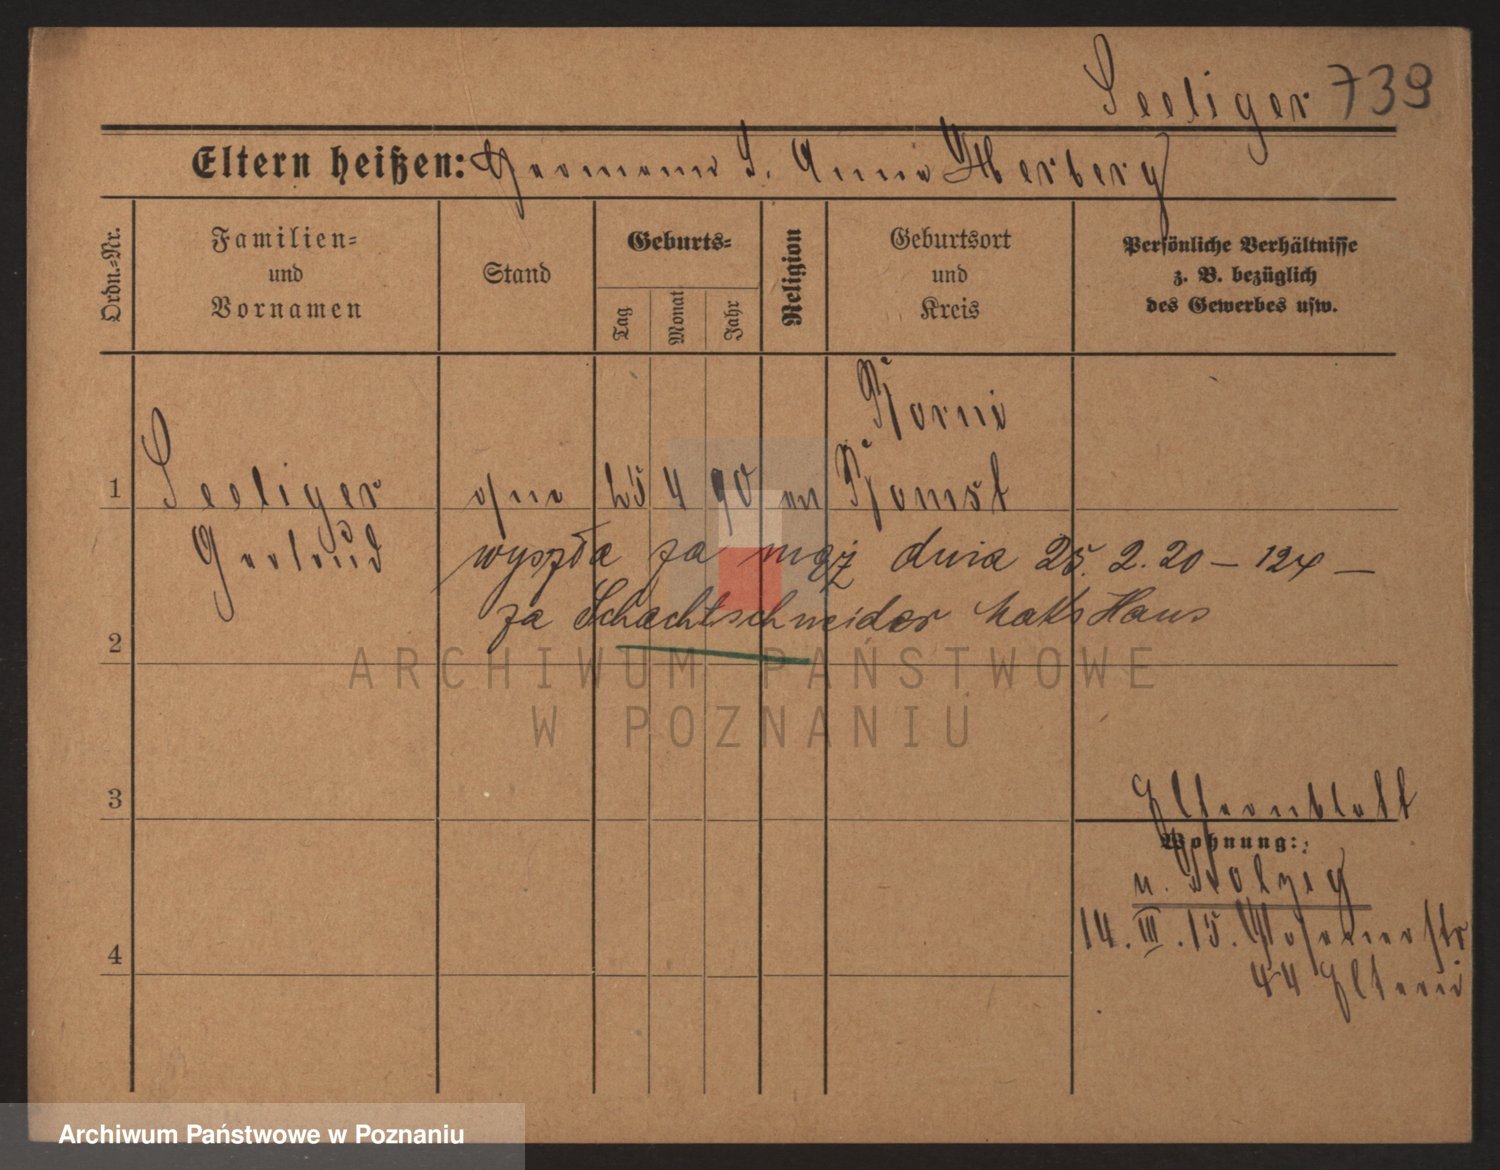 Seeliger 739
Eltern heißen: Hermann S. Anna Herberg
Ordn.-Nr.
Familien-
und
Vornamen
Stand
Geburts-
Tag
Monat
Jahr
Religion
Geburtsort
und
Kreis
Persönliche Verhältnisse
z. B. bezüglich
des Gewerbes usw.
1
Seeliger
ohne
25 4 90 ev Bomst
Gertrud
wyszła za mąż dnia 25. 2. 20 – 124 –
za Schachtschneider Maks Hans
2
3
4
Elternblatt
Wohnung:
n. Bolzig
14. III. 15. Posenerstr
44 Eltern
ARCHIWUM PAŃSTWOWE
W POZNANIU
Archiwum Państwowe w Poznaniu